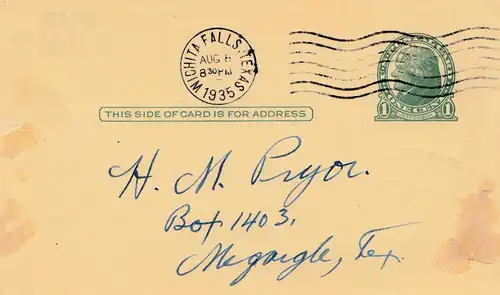 WICHITA FALLS, TEXAS
AUG 8
8 30 PM
1935
1 ONE CENT 1
JEFFERSON
THIS SIDE OF CARD IS FOR ADDRESS
H. M. Pryor.
Box 1403,
Megargle, Tex.